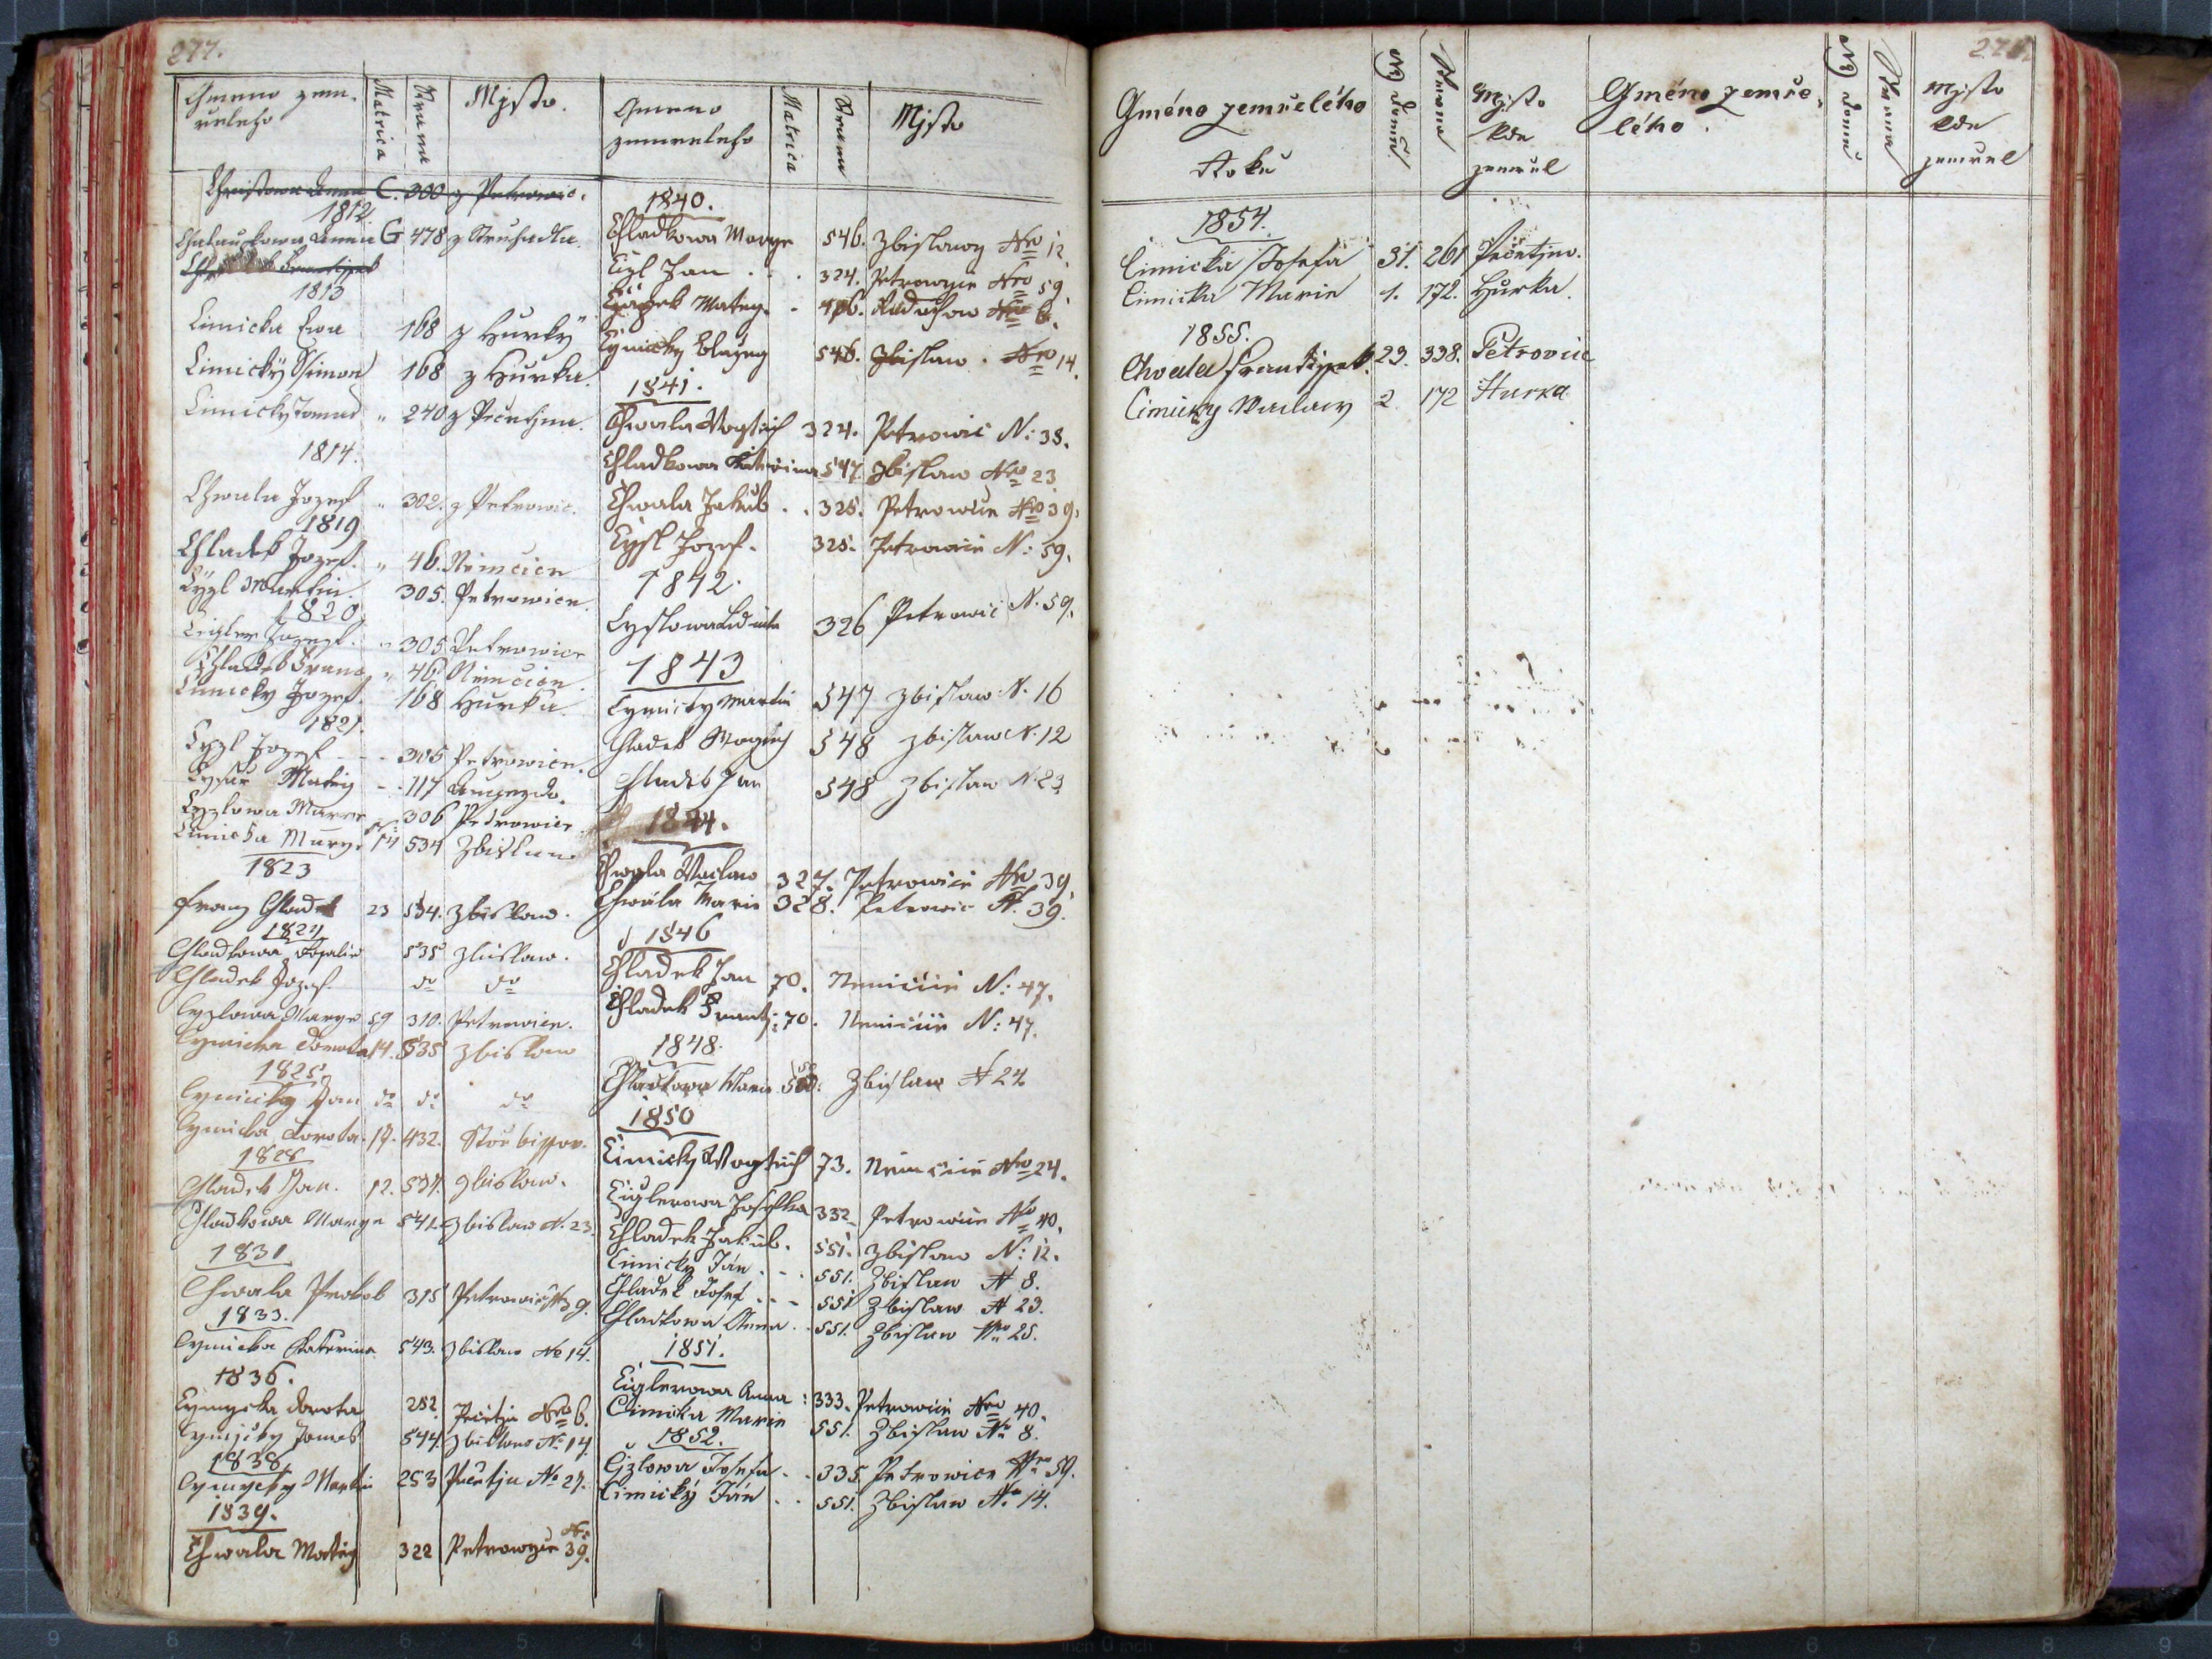 277.
Gmeno zem-
řelého
Matrica
Strana
Mjsto.
Christowa Anna C. 300 z Petrowic.
1812
Anna G 478 z Struhadla.
Frantissek
1813
Cimicka Ewa 168 z Hurky
Cimický Ssimon 168 z Hurka.
Cimicky Tomas " 240 z Pečetjna.
1814.
Chwala Jozef " 302. z Petrowic.
1819
Chladek Jozef. " 46. Nemčice
Cýzl Martin. 305. Petrowice.
1820
Cigler Jozef. " 305 Petrowice
Chladek Franc. " 46. Nemčice.
Cimicky Jozef. 168 Hurka.
1821.
Cyzl Jozef - - 305 Petrowice.
Matěg - - 117 Augezdo.
Cyzlowa Marye 306 Petrowice.
Cimicka Mary. 14 534 Zbislaw.
1823
Franz Chladek 23 534. Zbislaw.
1824
Chladkowa Rosalie 535 Zbislaw.
Chladek Jozef. do do
Cyzlowa Marye 59 310. Petrowice.
Cymicka Dorota 14. 535 Zbislaw
1825.
Cymicky Jan do do do
Cymicka Dorota. 17. 432.
1828
Chladek Jan. 12. 537. Zbislaw.
Chladkowa Marye 541. Zbislaw N. 23.
1831
Chwala Prokob 315 Petrowic 39.
1833.
Cymicka Katerina 543. Zbislaw No 14.
1836.
Cymycka Dorota 252. Pečetjn Nro 6.
Cymicky Tomas 544. Zbislaw No 14.
1838.
Cymycky Martin 253 Pečetjn No 27.
1839.
Chwala Matěg 322 Petrowyce N. 39.
Gmeno
zemřelého
Matrica
Strana
Mjsto
1840.
Chladkowa Marye 546. Zbislawy Nro 12.
Cizl Jan . . . 324. Petrowyce Nro 59.
Matěg. - Radochow Nro 6.
Cymický Blažeg 546. Zbislaw. Nro 14.
1841.
Chwala Wogtěch 324. Petrowic N: 38.
Chladkowa Kateřina 547. Zbislaw Nro 23
Chwala Jakub . . 325. Petrowice Nro 39.
Cyzl Jozef. 325. Petrowice N: 59.
1842.
Cyzlowa Ludmila 326 Petrowic N. 59.
1843
Cymicky Martin 547 Zbislaw N. 16
Chladek Wogtěch 548 Zbislaw N. 12
Chladek Jan 548 Zbislaw N. 23
1844.
Chwala Waclaw 327. Petrowice Nro 39.
Chwála Marie 328. Petrowic N. 39.
1846
Chladek Jan 70. Nemčice N: 47.
Chladek Frantz: 70. Nemčice N: 47.
1848.
Chladkowa Marie Zbislaw N 24.
1850
Cimický Wogtěch 73. Nemčice Nro 24.
Ciglerowa Josefka 332. Petrowice No 40.
Chladek Jakub. 551. Zbislaw N: 12.
Cimický Ján . - . 551. Zbislaw N 8.
Chladek Josef . - - 551 Zbislaw N 23.
Chladkowa Anna . . 551. Zbislaw Nro 25.
1851.
Ciglerowa Anna : 333. Petrowice Nro 40.
Cimicka Marie 551. Zbislaw No 8.
1852.
Cizlowa Josefa . . 335 Petrowice Nro 59.
Cimický Ján . . 551. Zbislaw No 14.
Gméno zemřelého
Roku
No domu
Strana
Mjsto
kde
zemřel
Gméno zemře-
lého.
No domu
Strana
Mjsto
kde
zemřel
1854.
Cimická Josefa 31. 261 Pečetjno.
Cimicka Marie 1. 172. Hurka.
1855.
Chvala Frantissek. 23. 338. Petrovice
Cimický Waclaw 2 172 Hurka